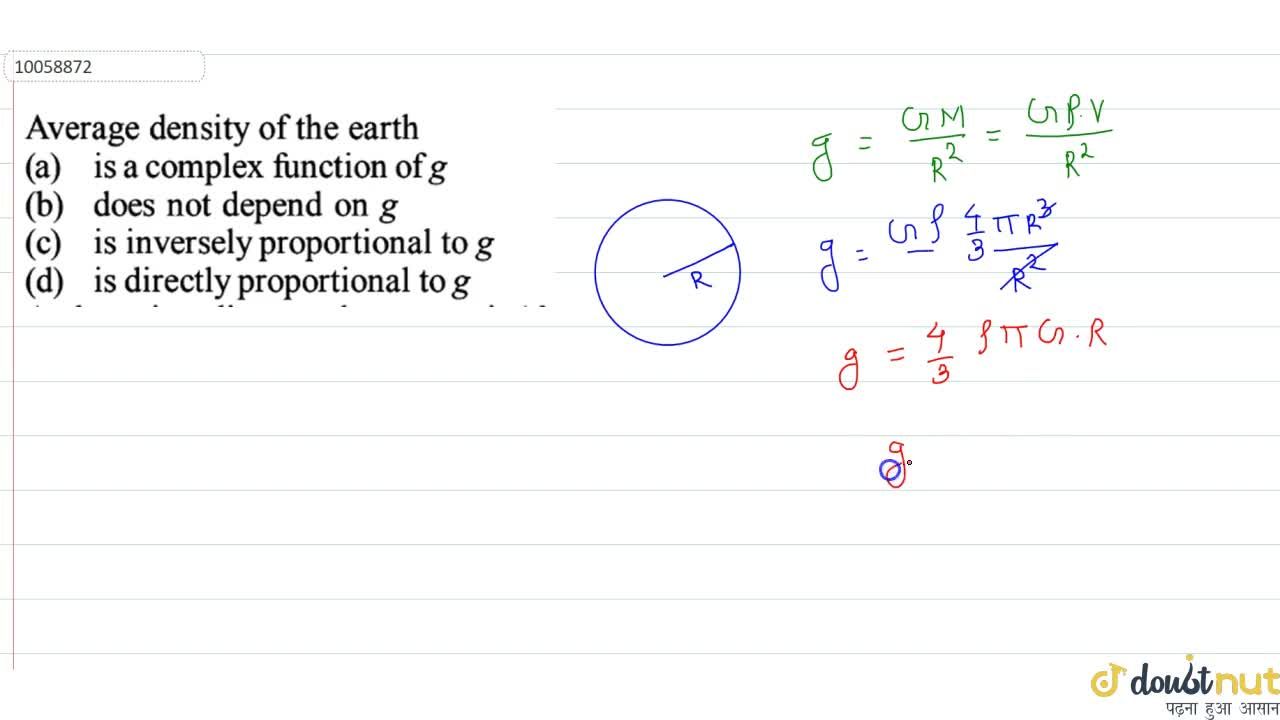 10058872
Average density of the earth
(a) is a complex function of g
(b) does not depend on g
(c) is inversely proportional to g
(d) is directly proportional to g
g = GM/R² = Gρ.V/R²
R
g = Gρ 4/3 πR³/R²
g = 4/3 ρπG.R
g
doubtnut
पढ़ना हुआ आसान